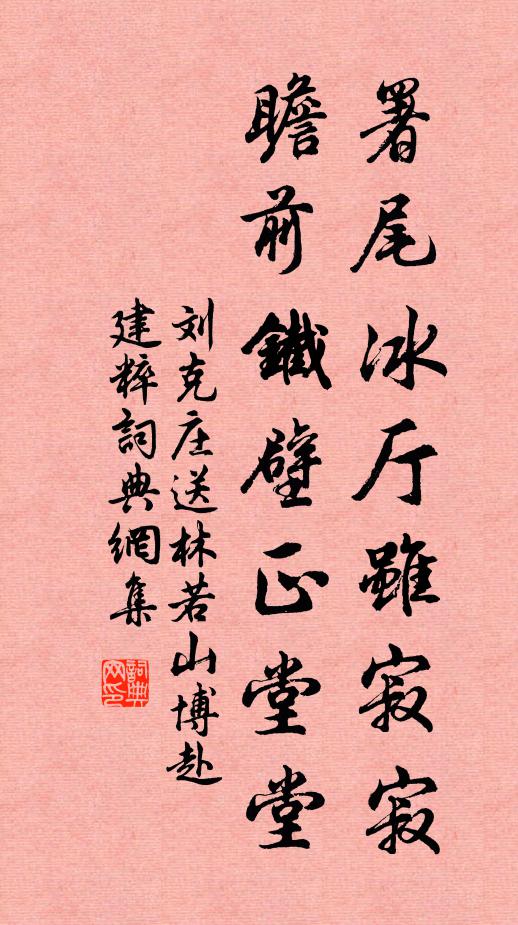 署尾冰厅雖寂寂
瞻前鐵壁正堂堂
刘克庄送林若山博赴
建粹詞典網集
詞典
网印